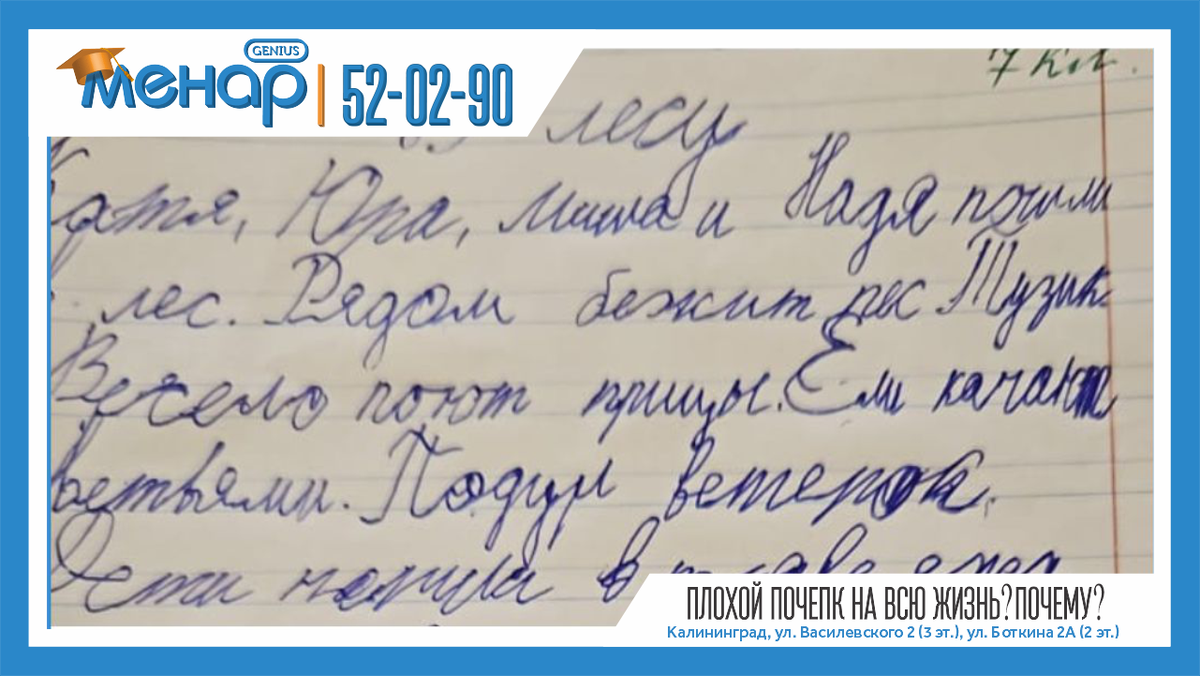 GENIUS
менар 52-02-90
7 кл.
лесу
Катя, Юра, Миша и Надя пошли
лес. Рядом бежит пес Тузик.
Весело поют птицы. Ели качают
ветвями. Подул ветерок.
Дети нашли в траве ежа
ПЛОХОЙ ПОЧЕПК НА ВСЮ ЖИЗНЬ?ПОЧЕМУ?
Калининград, ул. Василевского 2 (3 эт.), ул. Боткина 2А (2 эт.)